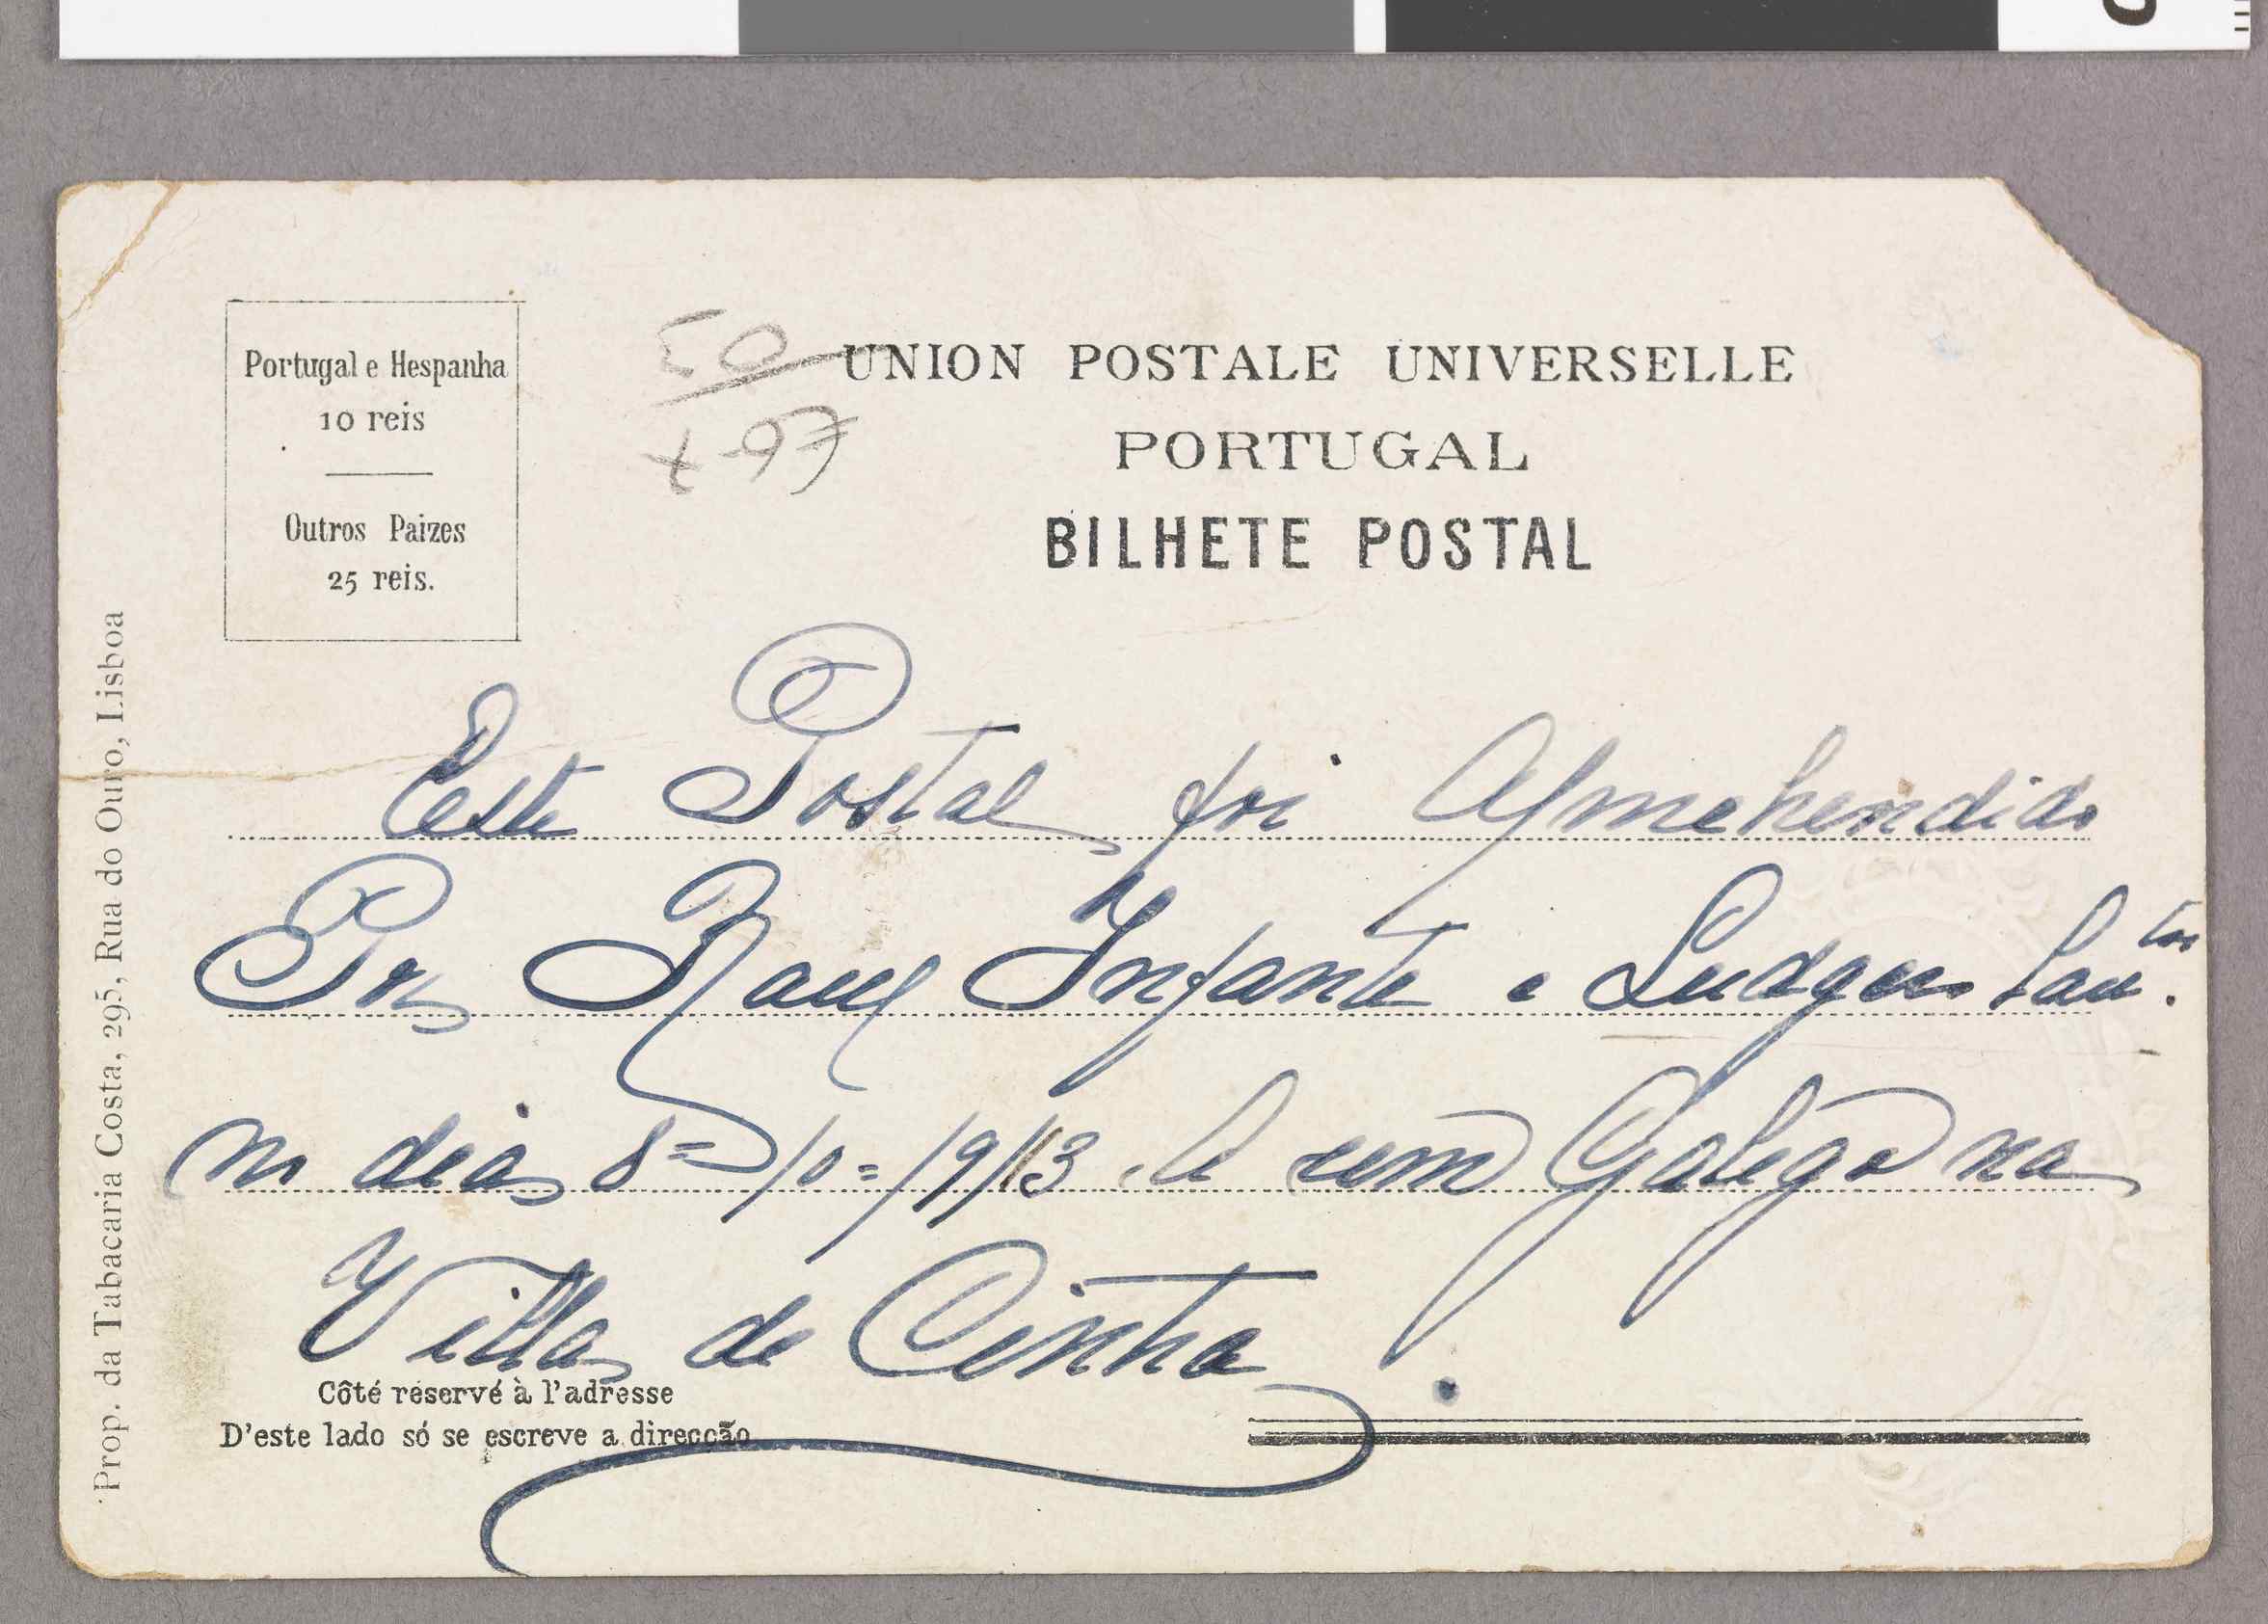 Portugal e Hespanha
10 reis
Outros Paizes
25 reis.
50
UNION POSTALE UNIVERSELLE
PORTUGAL
BILHETE POSTAL
Este Postal foi
Por Raul Infante e Ludgero
no dia 8=10=1913. A um Galego na
Villa de Cintra.
Côté réservé à l'adresse
D'este lado só se escreve a direcção
Prop. da Tabacaria Costa, 295, Rua do Ouro, Lisboa